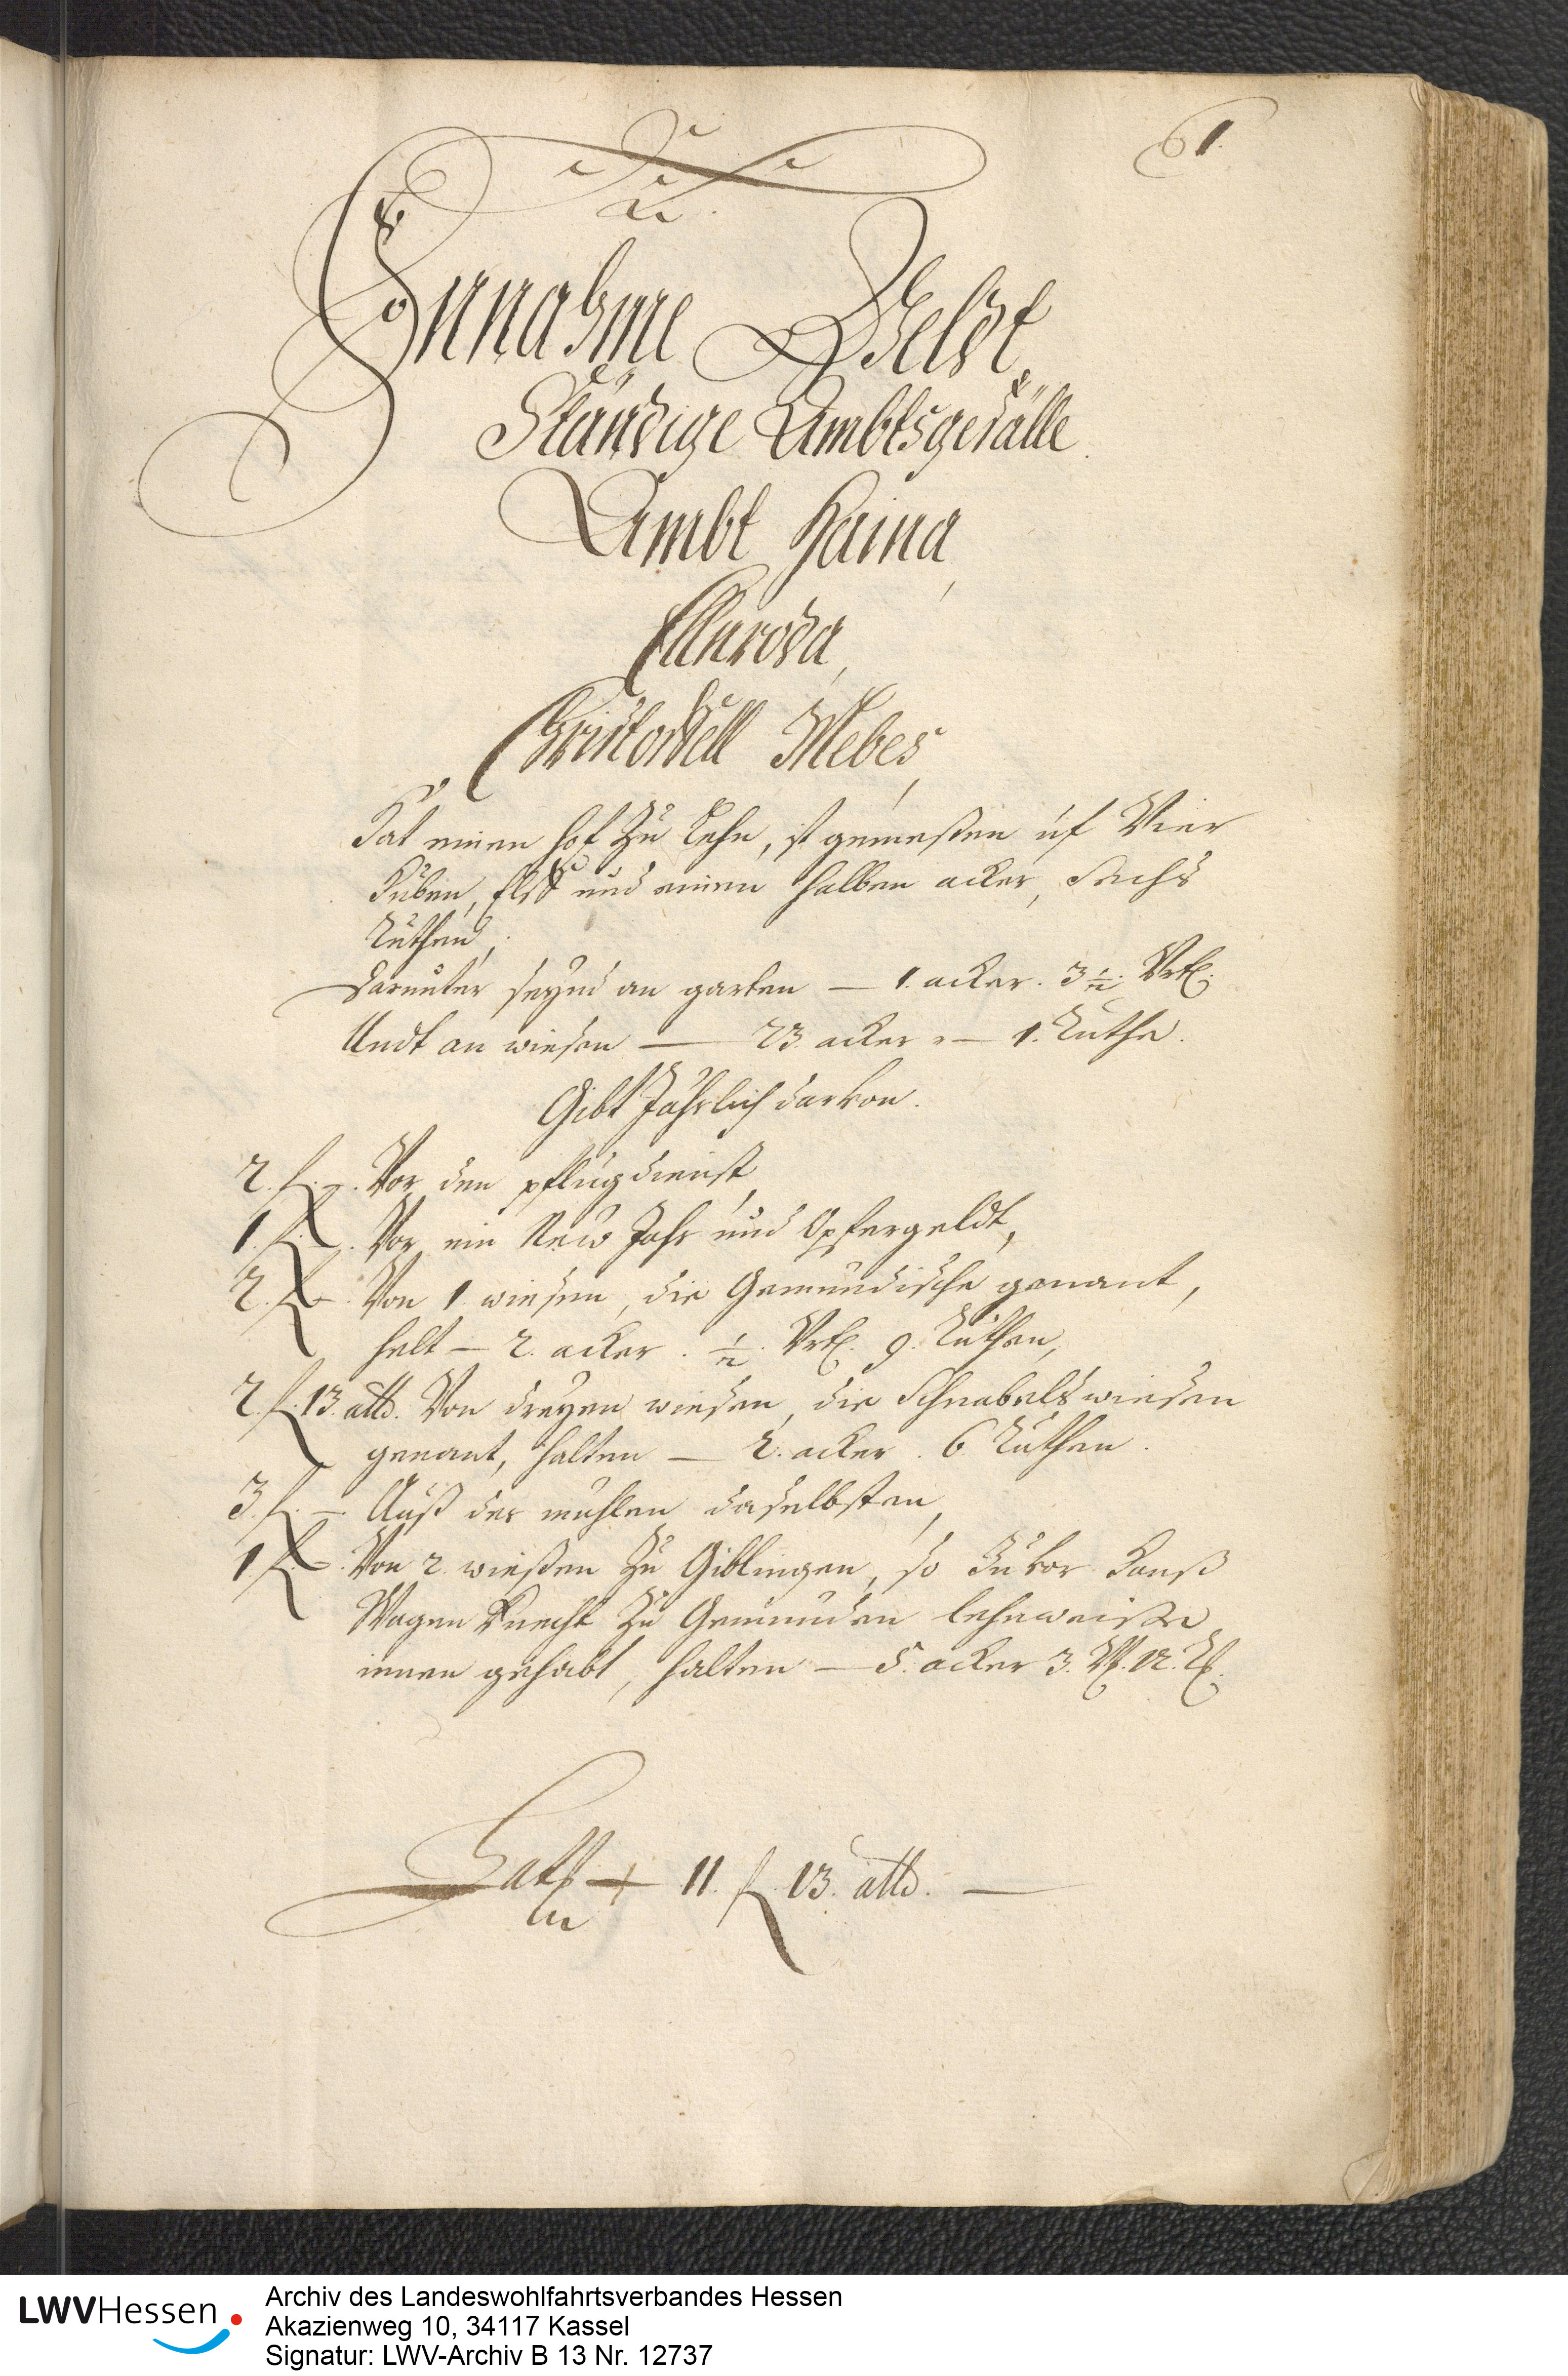 1.
Einnahme Geldt,
Ständige Ambtsgefälle.
Ambt Haina,
Ellnroda,
Christoffell Mebes,
Hat einen hof Zu Lehn, ist gemeßen uf Vier
Huben, Elff und einen halben acker, Sechs
Ruthen,
Darunter seynd an garten — 1. acker. 3 1/2. Vrtl.
Undt an wiesen — 23. acker — 1. Ruthe.
Gibt Jährlich darvon.
2. f. — Vor den pflugdienst,
1. f. — Vor ein New Jahr und Opfergeldt,
2. f. — Von 1. wiesen, die Gemündische genant,
helt — 2. acker. 1/2. Vrtl. 9. Ruthen,
2. f. 13. alb. Von dreyen wiesen, die Schnabelswiesen
genant, halten — 2. acker. 6. Ruthen.
3. f. — Auß der muhlen daselbsten,
1 f. — Von 2. wießen Zu Giblingen, so Zuvor Hanß
Wagenknecht Zu Gemünden lehnweiße
innen gehabt, halten — 5. acker 3. V. 12. R.
Lats 11. f. 13. alb. —
LWVHessen
Archiv des Landeswohlfahrtsverbandes Hessen
Akazienweg 10, 34117 Kassel
Signatur: LWV-Archiv B 13 Nr. 12737